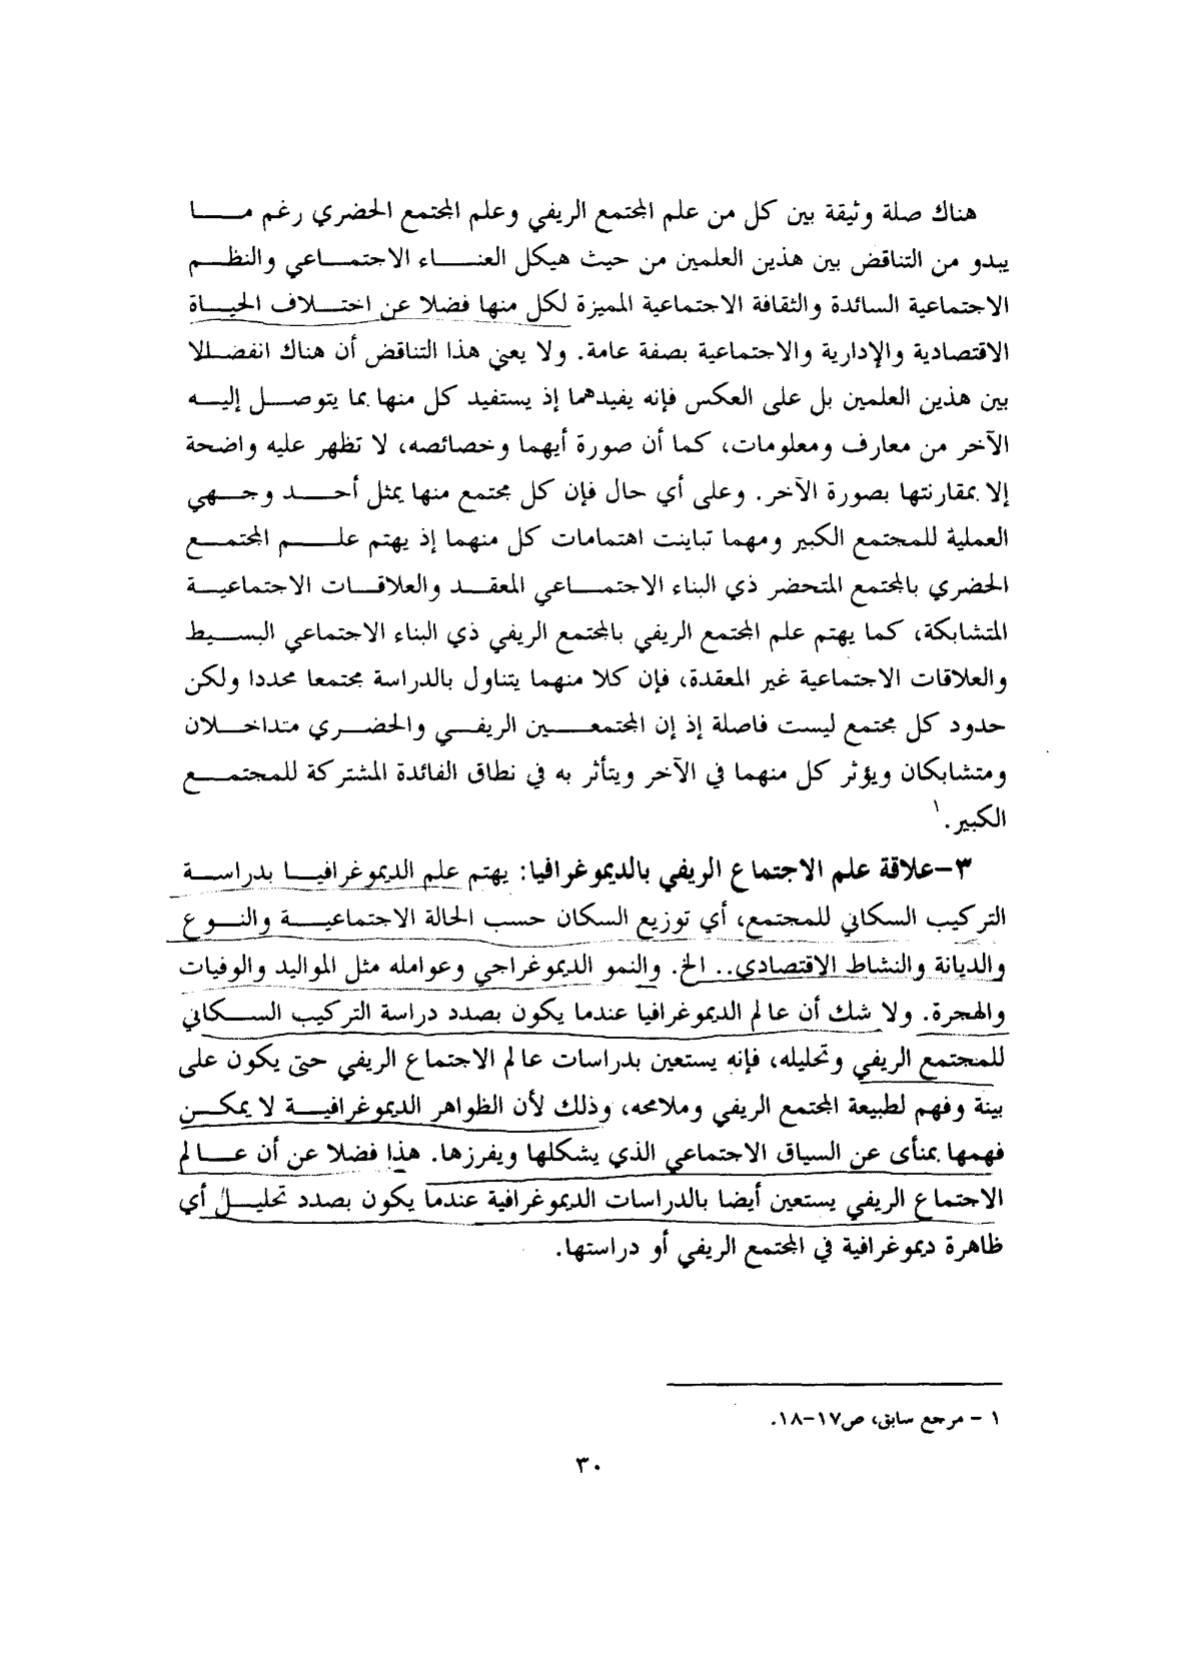 هناك صلة وثيقة بين كل من علم المجتمع الريفي وعلم المجتمع الحضري رغم ما
يبدو من التناقض بين هذين العلمين من حيث هيكل العناء الاجتماعي والنظم
الاجتماعية السائدة والثقافة الاجتماعية المميزة لكل منها فضلا عن اختلاف الحياة
الاقتصادية والإدارية والاجتماعية بصفة عامة. ولا يعني هذا التناقض أن هناك انفضالا
بين هذين العلمين بل على العكس فإنه يفيدهما إذ يستفيد كل منها بما يتوصل إليه
الآخر من معارف ومعلومات، كما أن صورة أيهما وخصائصه، لا تظهر عليه واضحة
إلا بمقارنتها بصورة الآخر. وعلى أي حال فإن كل مجتمع منها يمثل أحد وجهي
العملية للمجتمع الكبير ومهما تباينت اهتمامات كل منهما إذ يهتم علم المجتمع
الحضري بالمجتمع المتحضر ذي البناء الاجتماعي المعقد والعلاقات الاجتماعية
المتشابكة، كما يهتم علم المجتمع الريفي بالمجتمع الريفي ذي البناء الاجتماعي البسيط
والعلاقات الاجتماعية غير المعقدة، فإن كلا منهما يتناول بالدراسة مجتمعا محددا ولكن
حدود كل مجتمع ليست فاصلة إذ إن المجتمعين الريفي والحضري متداخلان
ومتشابكان ويؤثر كل منهما في الآخر ويتأثر به في نطاق الفائدة المشتركة للمجتمع
الكبير.١
٣-علاقة علم الاجتماع الريفي بالديموغرافيا: يهتم علم الديموغرافيا بدراسة
التركيب السكاني للمجتمع، أي توزيع السكان حسب الحالة الاجتماعية والنوع
والديانة والنشاط الاقتصادي.. الخ. والنمو الديموغراجي وعوامله مثل المواليد والوفيات
والهجرة. ولا شك أن عالم الديموغرافيا عندما يكون بصدد دراسة التركيب السكاني
للمجتمع الريفي وتحليله، فإنه يستعين بدراسات عالم الاجتماع الريفي حتى يكون على
بينة وفهم لطبيعة المجتمع الريفي وملامحه، وذلك لأن الظواهر الديموغرافية لا يمكن
فهمها بمنأى عن السياق الاجتماعي الذي يشكلها ويفرزها. هذا فضلا عن أن عالم
الاجتماع الريفي يستعين أيضا بالدراسات الديموغرافية عندما يكون بصدد تحليل أي
ظاهرة ديموغرافية في المجتمع الريفي أو دراستها.
١ - مرجع سابق، ص١٧-١٨.
٣٠